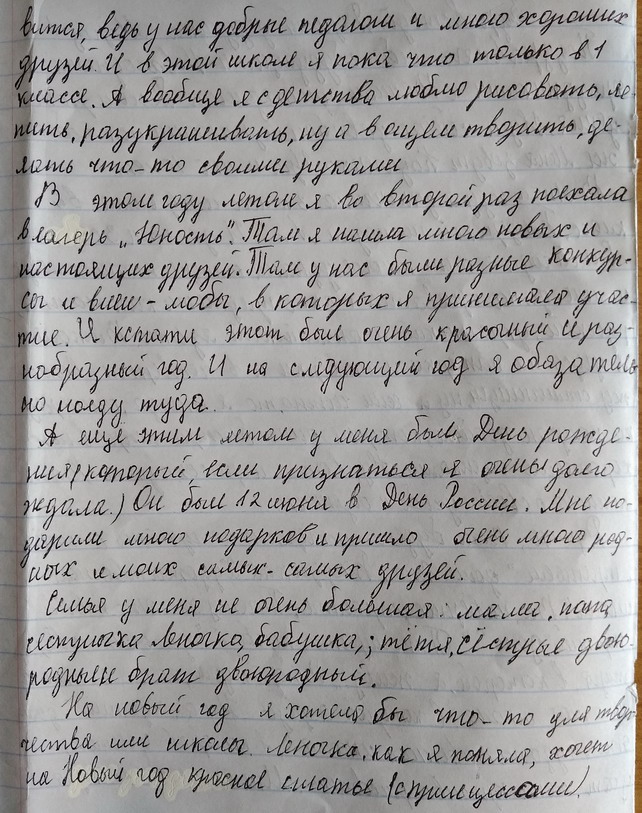 вится, ведь у нас добрые педагоги и много хороших
друзей. И в этой школе я пока что только в 1
классе. А вообще я с детства люблю рисовать, ле-
пить, разукрашивать, ну а в общем творить, де-
лать что-то своими руками
В этом году летом я во второй раз поехала
в лагерь „Юность". Там я нашла много новых и
настоящих друзей. Там у нас были разные конкур-
сы и в которых я принимала учас-
тие. И кстати этот был очень красочный и раз-
нобразный год. И на следующий год я обазатель
но поеду туда.
А еще этим летом у меня был День рожде-
ния (который, если признаться я очень долго
ждала.) Он был 12 июня в День России. Мне по-
дарили много подарков и пришло очень много род-
ных и моих самых-самых друзей.
Семья у меня не очень большая: мама, папа
сестрычка Леночка, бабушка,; тётя, сёстры двою-
родные и брат двоюродный.
На новый год я хотела бы что-то для твор-
чества или школы. Леночка, как я поняла, хочет
на Новый год красное платье (с принцессами).